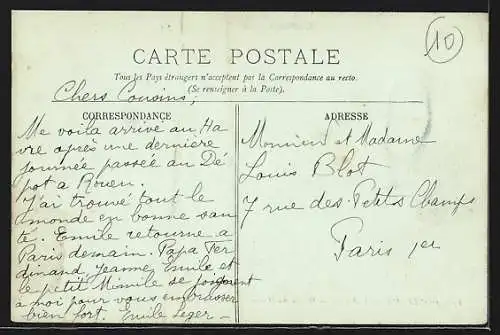 10
CARTE POSTALE
Tous les Pays étrangers n'acceptent pas la Correspondance au recto.
(Se renseigner à la Poste).
Chers Cousins,
CORRESPONDANCE
Me voila arrivé au Ha
vre après une derniere
journée passée au Dé
pot a Rouen.
J'ai trouvé tout le
monde en bonne san
té. Emile retourne a
Paris demain. Papa Fer
dinand, Jeanne, Emile et
le petit Mimile se joignent
a moi pour vous embrasser
bien fort. Emile Leger -
ADRESSE
Monsieur et Madame
Louis Blot
7 rue des Petits Champs
Paris 1er